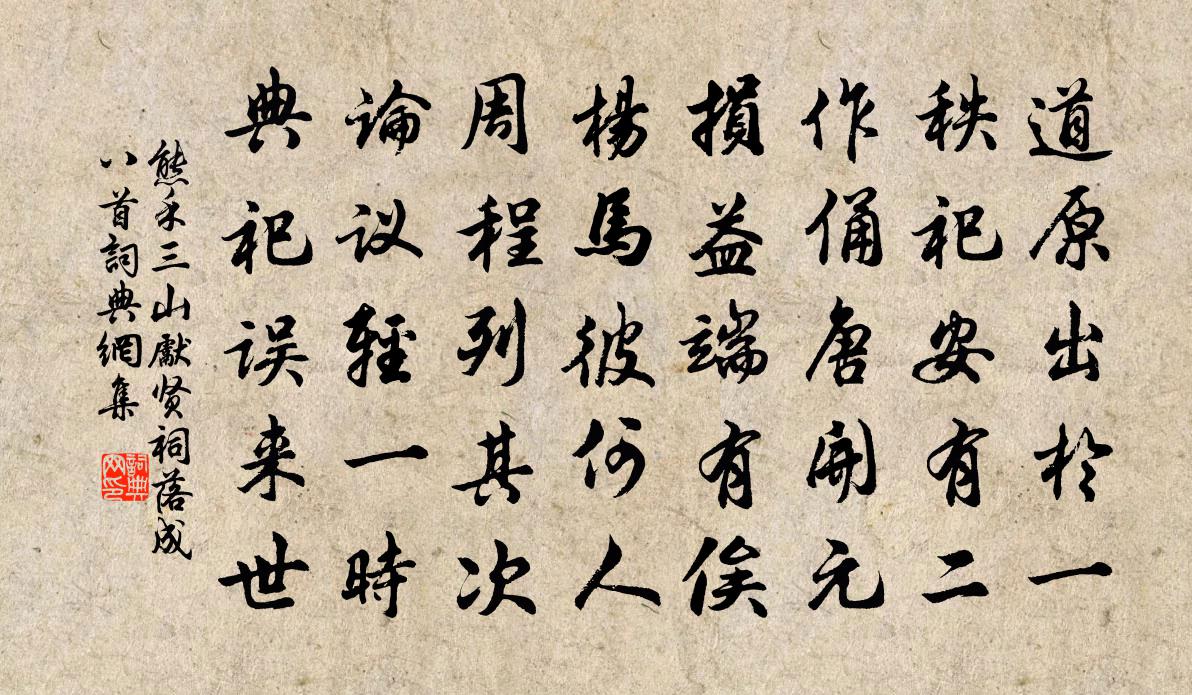 道原出於一
秩祀安有二
作俑唐開元
損益端有俟
楊馬彼何人
周程列其次
論议輕一時
典祀误来世
熊禾三山獻贤祠落成
八首詞典網集
詞典网印